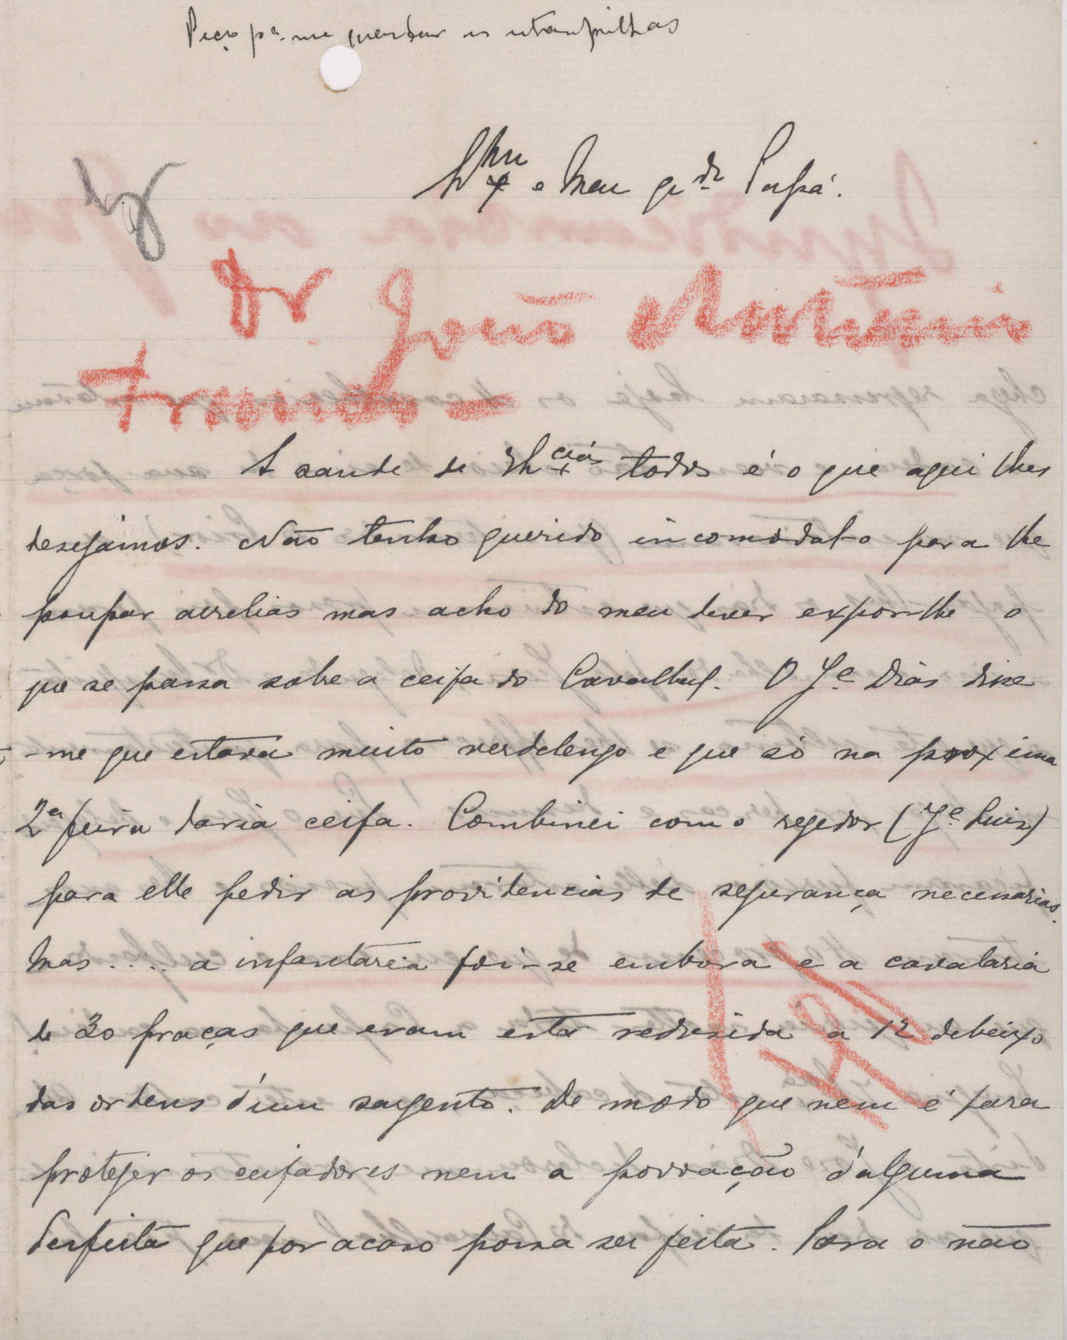 Peço pª me guardar as estampilhas
e Meu qdo Papá.
Dr. João
A saude de todos é o que aqui lhes
desejâmos. Não tenho querido incomodal-o para lhe
poupar arrelias mas acho do meu dever expor-lhe o
que se passa sobre a ceifa do Carvalhal. O Jé Dias disse
-me que estava muito verdelengo e que só na proxima
2ª feira daria ceifa. Combinei com o regedor (Jé Luiz)
para elle pedir as providencias de segurança necessarias.
Mas.... a infantaria foi-se embora e a cavalaria
de 30 praças que eram está redusida a 12 debaixo
das ordens d'um sargento. De modo que nem é para
protejer os ceifadores nem a povoação d'alguma
que por acaso possa ser feita. Para o não